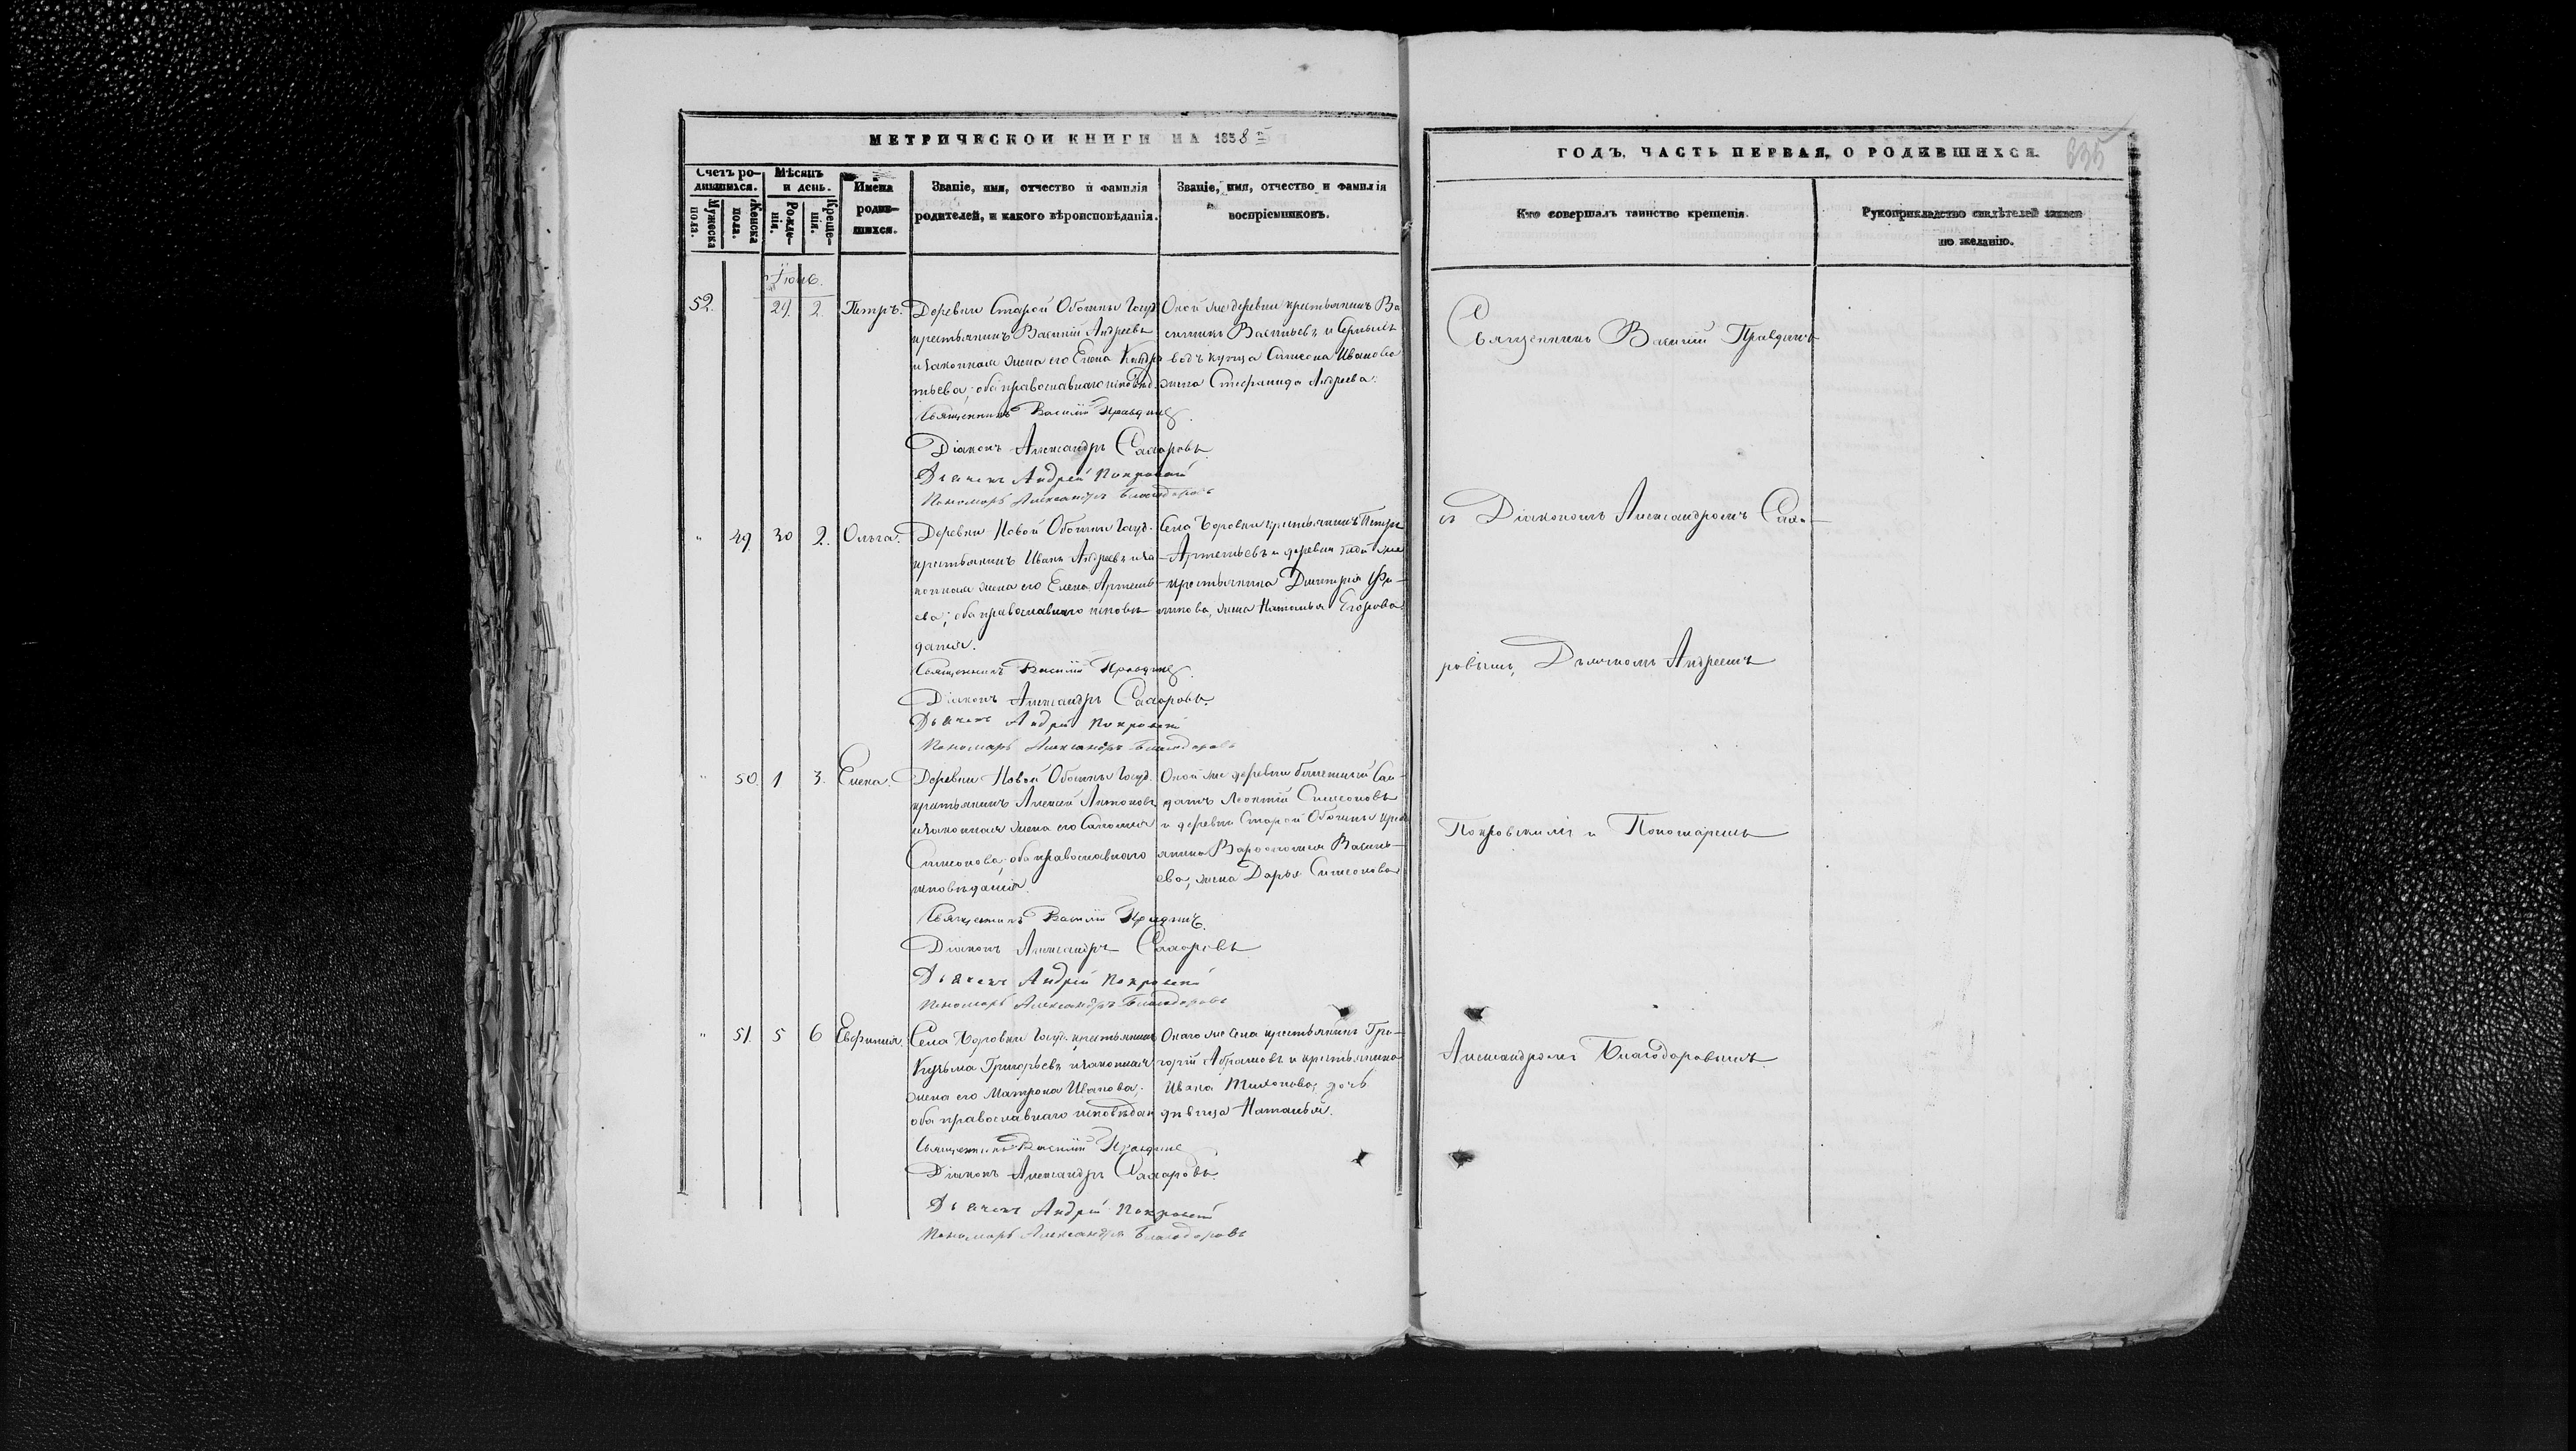 МЕТРИЧЕСКОЙ КНИГИ НА 1858й
Счетъ родившихся.
Мѣсяцъ и день.
Имена родившихся.
Званіе, имя, отчество и фамилія родителей, и какого вѣроисповѣданія.
Званіе, имя, отчество и фамилія воспріемниковъ.
Мужеска пола.
Женска пола.
Рожденія.
Крещенія.
52. 29. 2. Петръ.
Деревни Старой Обошни Госуд.
крестьянинъ Василій Андреевъ
и законная жена его Елена
тьева; оба православнаго исповѣд.
Оной же деревни крестьянинъ Ва
Васильевъ и
купца Симеона Иванова
жена Стефанида Андреева.
Священникъ Василій Правдинъ
Діаконъ Александръ Сахаровъ
Дьячекъ Андрей Покровскій
Пономарь Александръ Благодаровъ
" 49. 30 2. Ольга.
Деревни Новой Обошни Госуд.
крестьянинъ Иванъ Андреевъ и за
конная жена его Елена Артемь
ева; оба православнаго исповѣ
данія.
Села крестьянинъ Петръ
Артемьевъ и деревни той же
крестьянина Димитрія Фи
липова, жена Наталья Егорова.
Священникъ Василій Правдинъ
Діаконъ Александръ Сахаровъ.
Дьячекъ Андрей Покровскій
Пономарь Александръ Благодаровъ
" 50. 1 3. Елена.
Деревни Новой Обошни Госуд.
крестьянинъ Алексей Антоновъ
и законная жена его Саломія
Симеонова; оба православнаго
исповѣданія.
Оной же деревни билетный Сол
датъ Леонтій Симеоновъ
и деревни Старой Обошни крест
янина Варфоломея Василь
ева, жена Дарья Симеонова
Священникъ Василій Правдинъ.
Діаконъ Александръ Сахаровъ
Дьячекъ Андрей Покровскій
Пономарь Александръ Благодаровъ
" 51. 5 6 Евфимія.
Села Госуд. крестьянинъ
Кузьма Григорьевъ и законная
жена его Матрона Иванова;
оба православнаго исповѣдан
Онаго же села крестьянинъ Гри
горій Абрамовъ и крестьянина
Ивана Тихонова, дочь
дѣвица Наталья.
Священникъ Василій Правдинъ
Діаконъ Александръ Сахаровъ.
Дьячекъ Андрей Покровскій
Пономарь Александръ Благодаровъ
ГОДЪ, ЧАСТЬ ПЕРВАЯ, О РОДИВШИХСЯ.
635
Кто совершалъ таинство крещенія.
Рукоприкладство свидѣтелей записи
по желанію.
Священникъ Василій Правдинъ
съ Діакономъ Александромъ Саха
ровымъ, Дьячкомъ Андреемъ
Покровскимъ и Пономаремъ
Александромъ Благодаровымъ